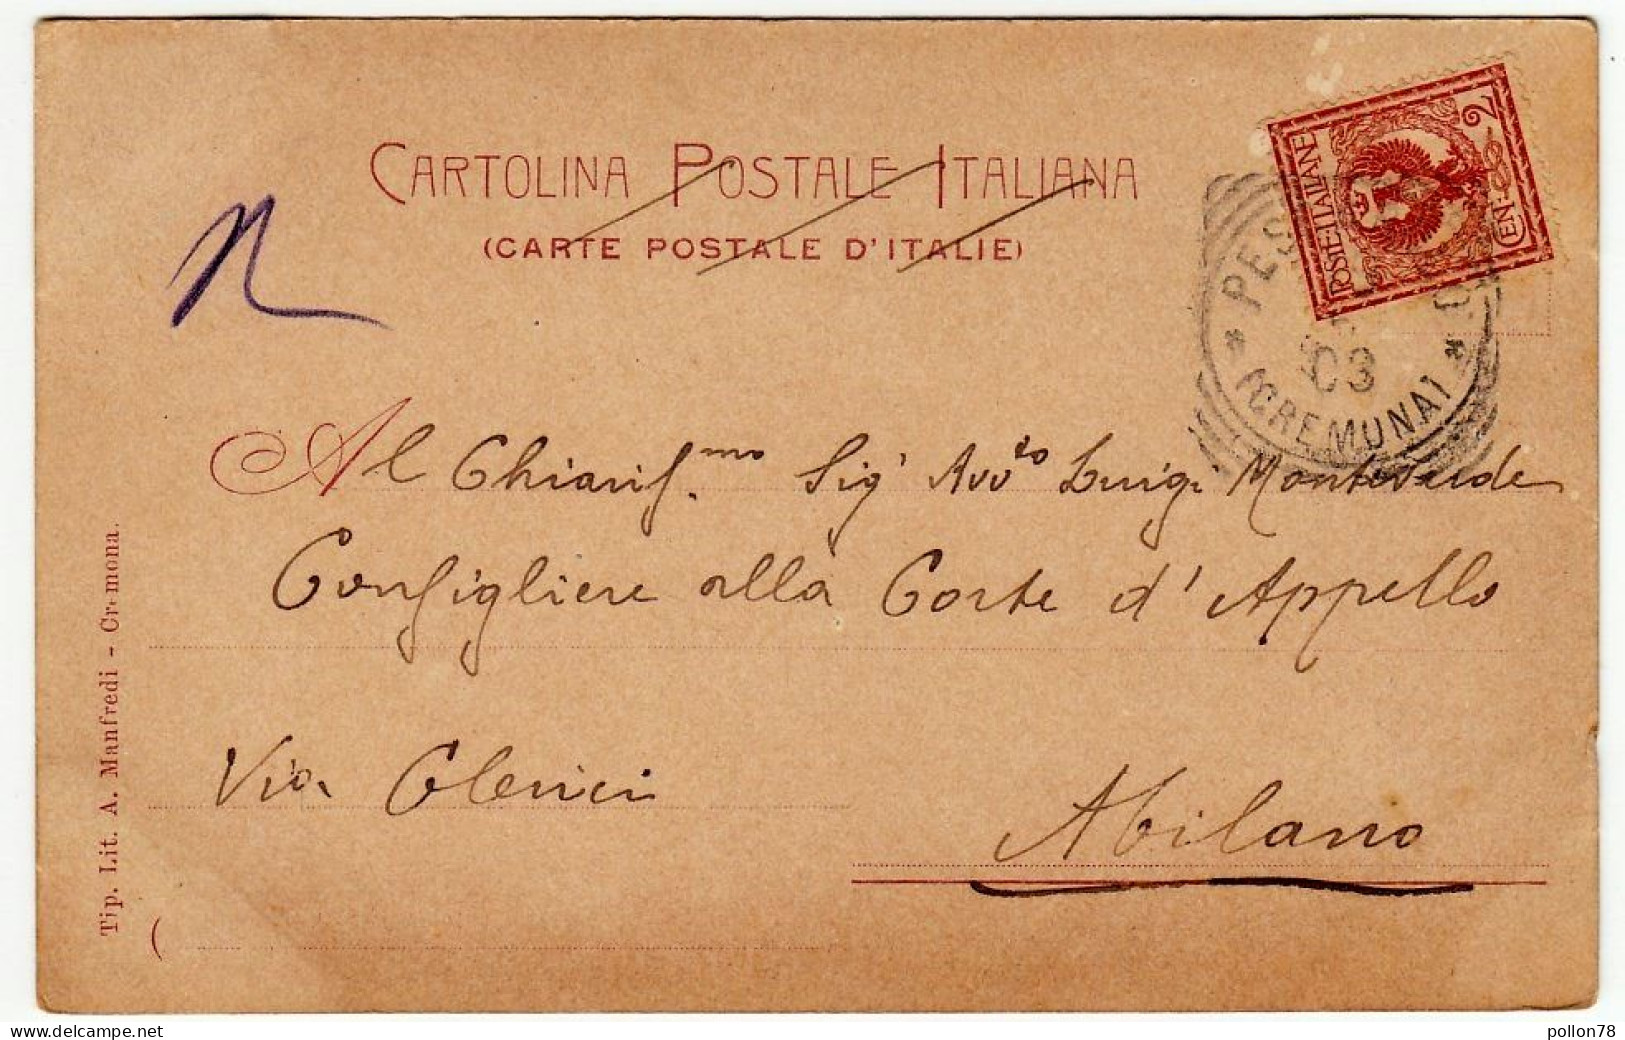 CARTOLINA POSTALE ITALIANA
(CARTE POSTALE D'ITALIE)
POSTE·ITALIANE
CEN: 2
PES
03
(CREMONA)
Al Chiariss.mo Sig' Avv.to Luigi Monteverde
Consigliere alla Corte d'Appello
Via Clerici
Milano
Tip. Lit. A. Manfredi - Cremona.
(
www.delcampe.net
pollon78